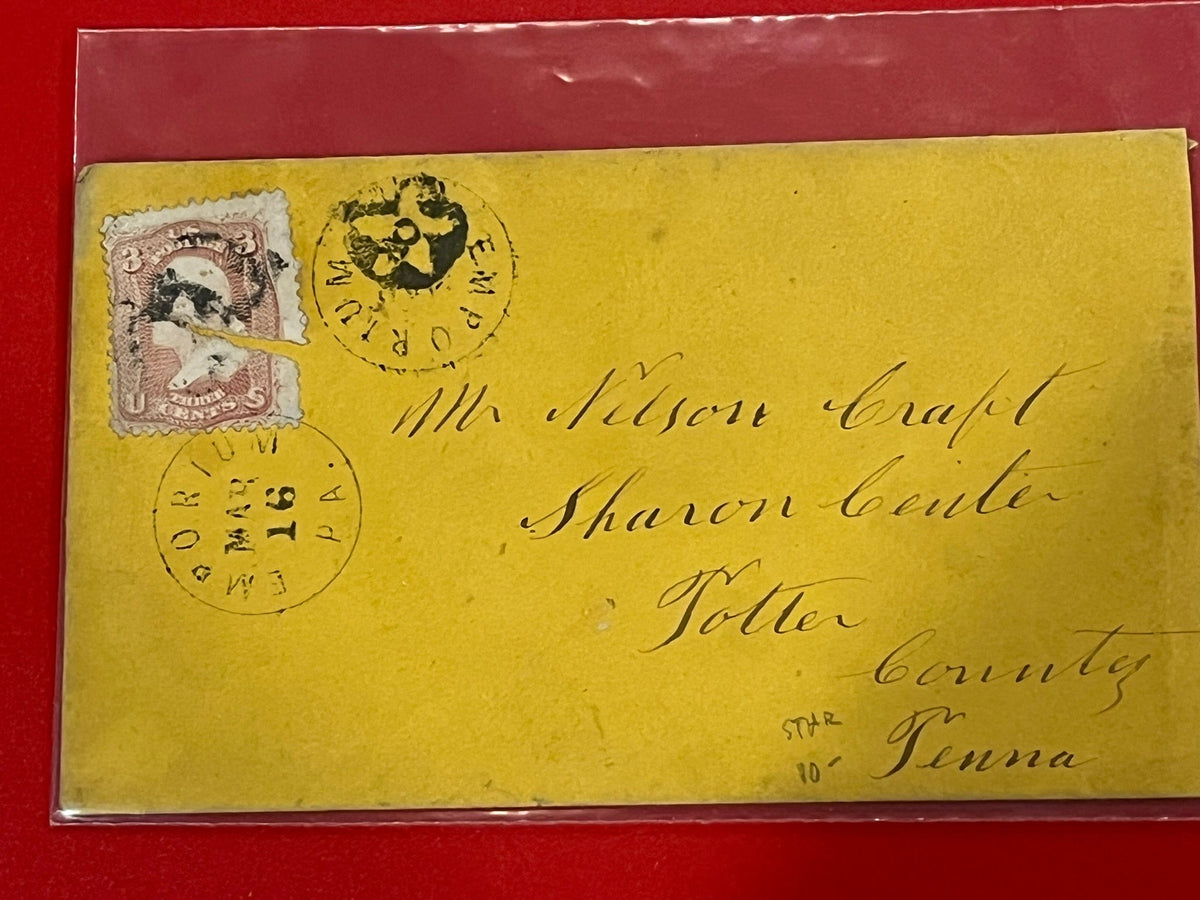 U.S. POSTAGE
3 3
U THREE S
CENTS
EMPORIUM
EMPORIUM PA.
MAR
16
Mr Nelson Craft
Sharon Center
Potter
County
Penna
STAR
10